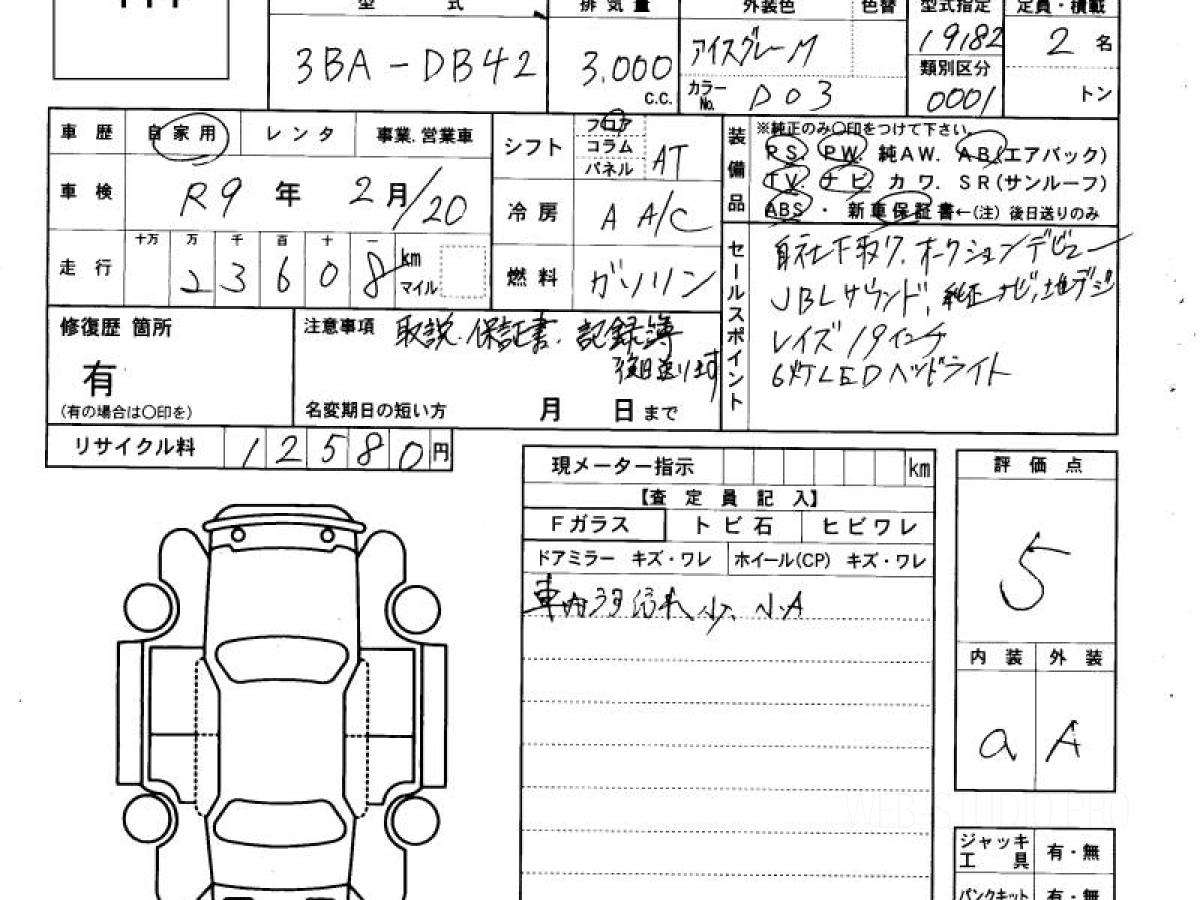 型 式 排気量 外装色 色替 型式指定 定員・積載
3BA-DB42 3.000 C.C. アイスグレーM 19182 2 名
カラーNo. D03 類別区分 0001 トン
車歴 自家用 レンタ 事業.営業車
車検 R9 年 2 月/20
走行 十万 万 千 百 十 一 km マイル
23608
シフト フロア コラム パネル AT
冷房 A A/C
燃料 ガソリン
装備品 ※純正のみ○印をつけて下さい。
PS. PW. 純AW. AB.(エアバック)
TV. ナビ. カワ. SR(サンルーフ)
ABS・新車保証書←(注) 後日送りのみ
セールスポイント
自社下取り.オークションデビュー
JBLサウンド,純正ナビ,地デジ
レイズ19インチ
6ガケLEDヘッドライト
修復歴 箇所
有
(有の場合は○印を)
注意事項 取説.保証書.記録簿
後日送ります
名変期日の短い方 月 日まで
リサイクル料 12580円
現メーター指示 km
【査定員記入】
Fガラス トビ石 ヒビワレ
ドアミラー キズ・ワレ ホイール(CP) キズ・ワレ
車内 汚れ小、小A
評価点
5
内装 外装
a A
ジャッキ 工具 有・無
パンクキット 有・無
WEB-STUDIO PRO